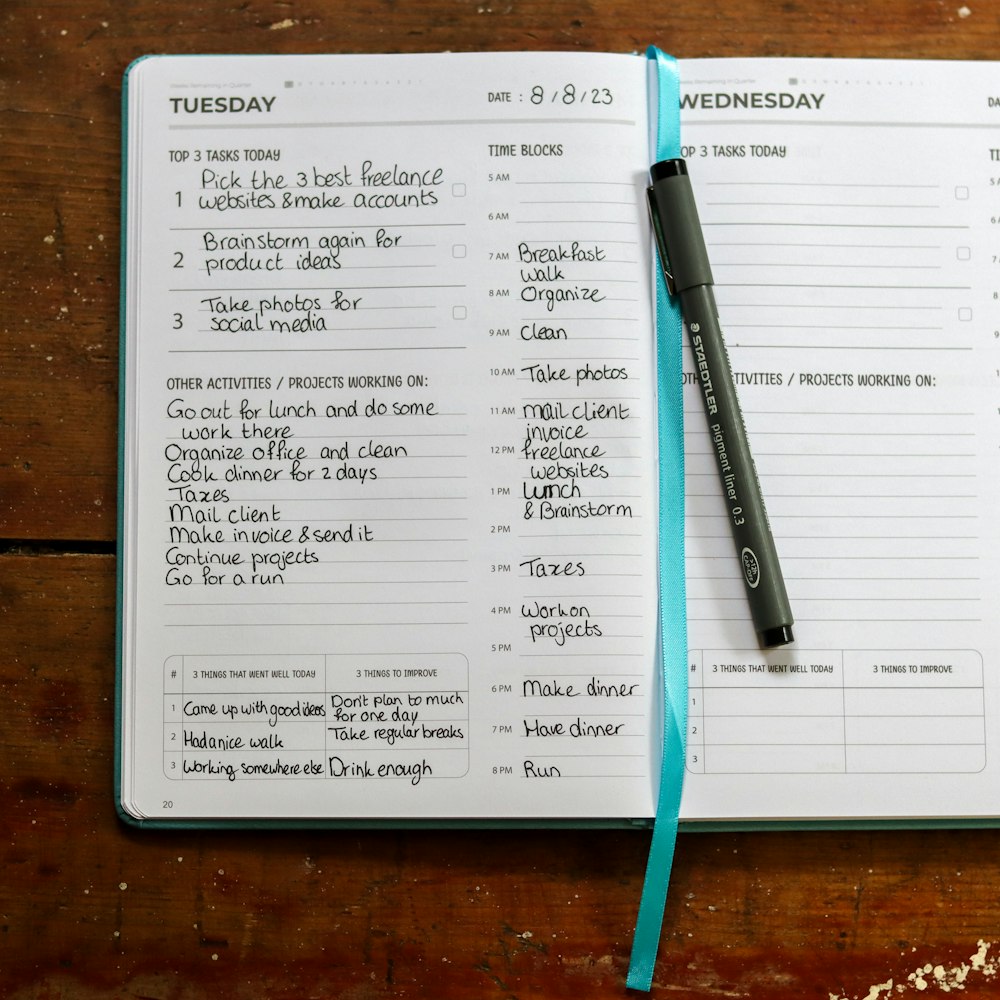 Weeks Remaining in Quarter
TUESDAY
DATE : 8/8/23
TOP 3 TASKS TODAY
1 Pick the 3 best freelance
websites & make accounts
2 Brainstorm again for
product ideas
3 Take photos for
social media
OTHER ACTIVITIES / PROJECTS WORKING ON:
Go out for lunch and do some
work there
Organize office and clean
Cook dinner for 2 days
Taxes
Mail client
Make invoice & send it
Continue projects
Go for a run
# 3 THINGS THAT WENT WELL TODAY 3 THINGS TO IMPROVE
1 Came up with good ideas Don't plan to much
for one day
2 Had a nice walk Take regular breaks
3 Working somewhere else Drink enough
20
TIME BLOCKS
5 AM
6 AM
7 AM Breakfast
walk
8 AM Organize
9 AM Clean
10 AM Take photos
11 AM mail client
invoice
12 PM freelance
websites
1 PM Lunch
& Brainstorm
2 PM
3 PM Taxes
4 PM Work on
projects
5 PM
6 PM Make dinner
7 PM Have dinner
8 PM Run
STAEDTLER pigment liner 0.3
Remaining in Quarter
WEDNESDAY
DA
OP 3 TASKS TODAY
TI
OTH TIVITIES / PROJECTS WORKING ON:
# 3 THINGS THAT WENT WELL TODAY 3 THINGS TO IMPROVE
1
2
3